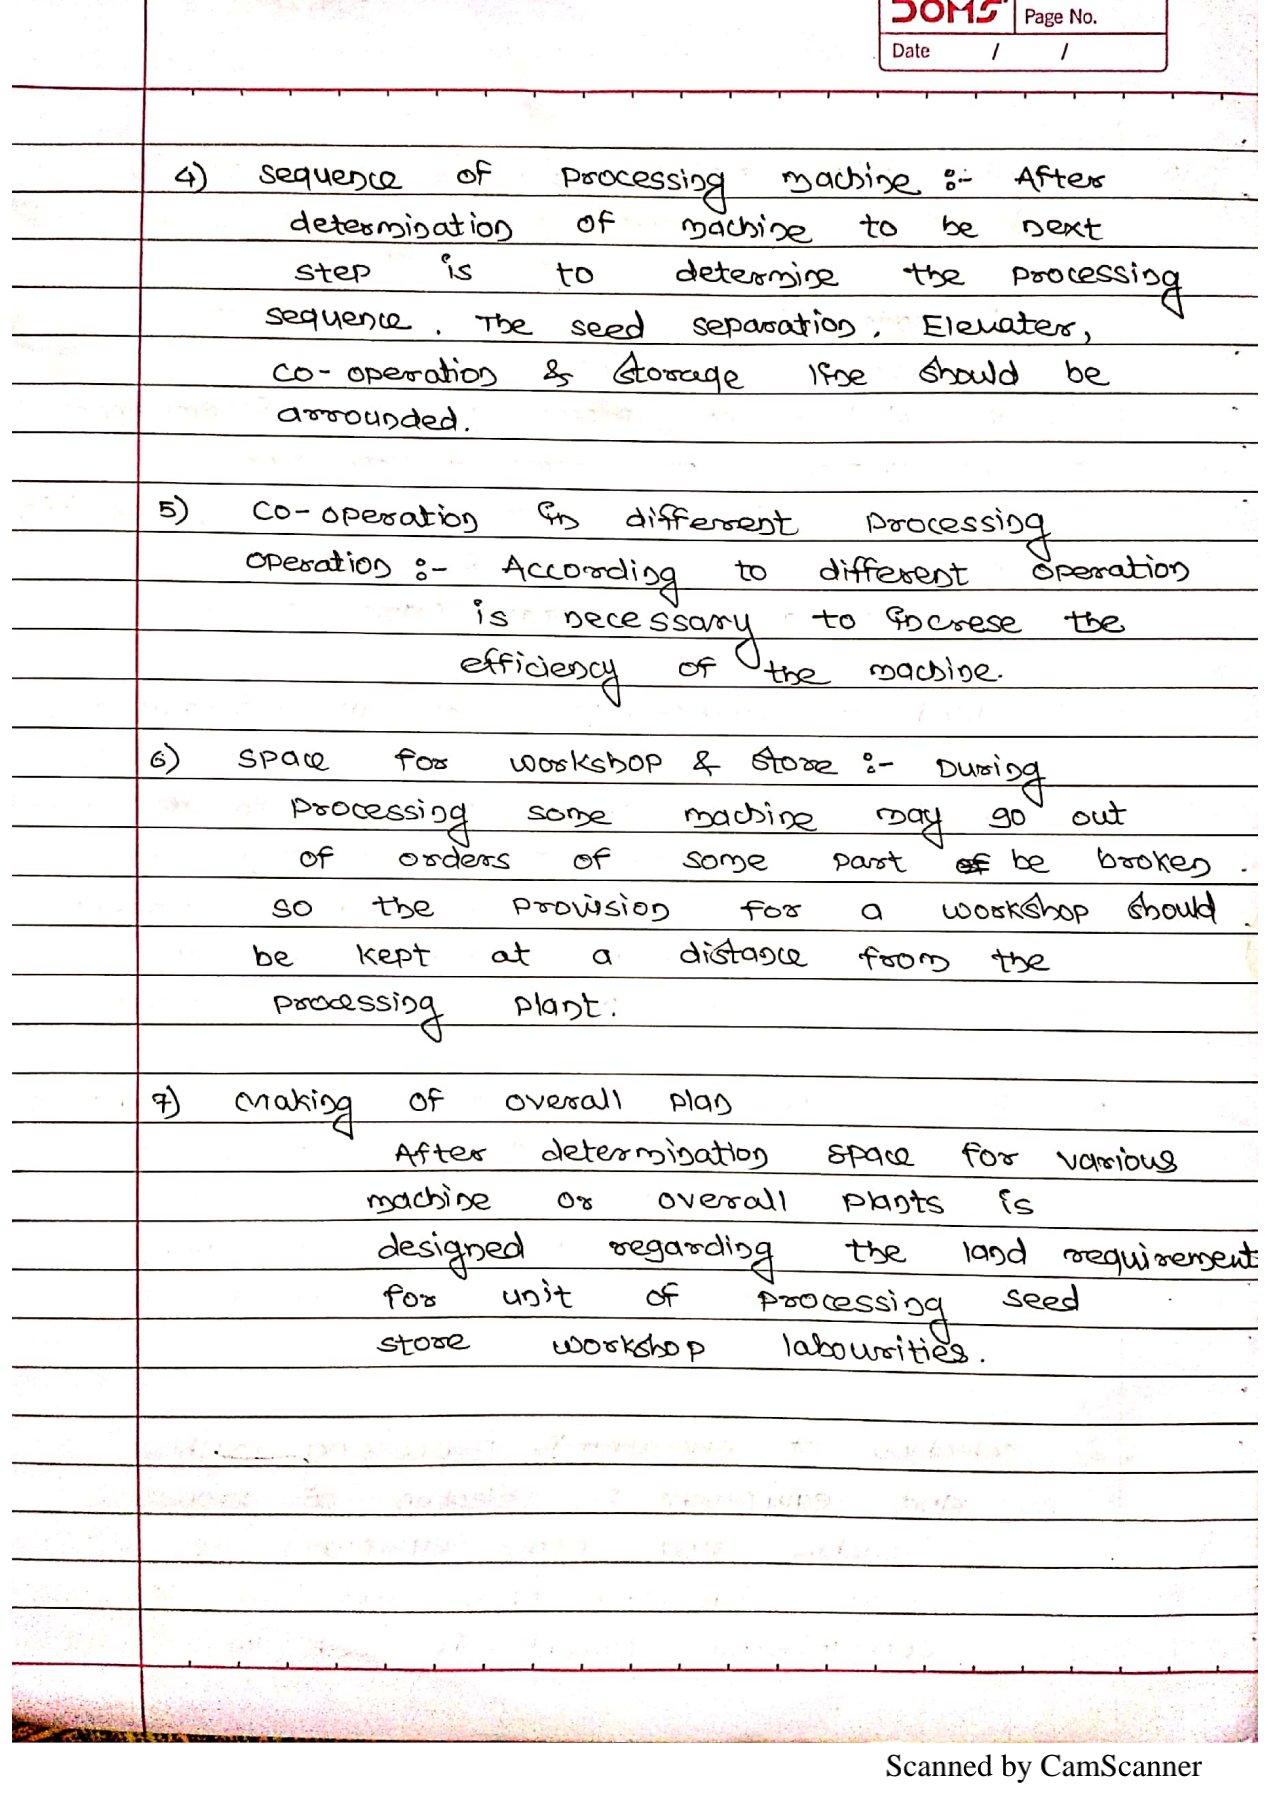 DOMS Page No.
Date / /
4) sequence of processing machine :- After
determination of machine to be next
step is to determine the processing
sequence. The seed separation, Elevater,
co-operation & storage line should be
arrounded.
5) co-operation in different processing
operation :- According to different operation
is necessary to increse the
efficiency of the machine.
6) space for workshop & store :- During
processing some machine may go out
of orders of some part of be broken.
so the provision for a workshop should
be kept at a distance from the
processing plant.
7) Making of overall plan
After determination space for various
machine or overall plants is
designed regarding the land requirement
for unit of processing seed
store workshop labourities.
Scanned by CamScanner